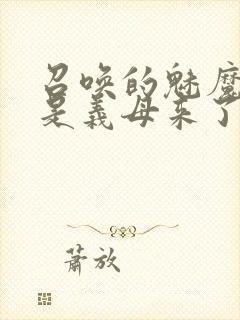 召唤的魅魔
是義母来了
萧放